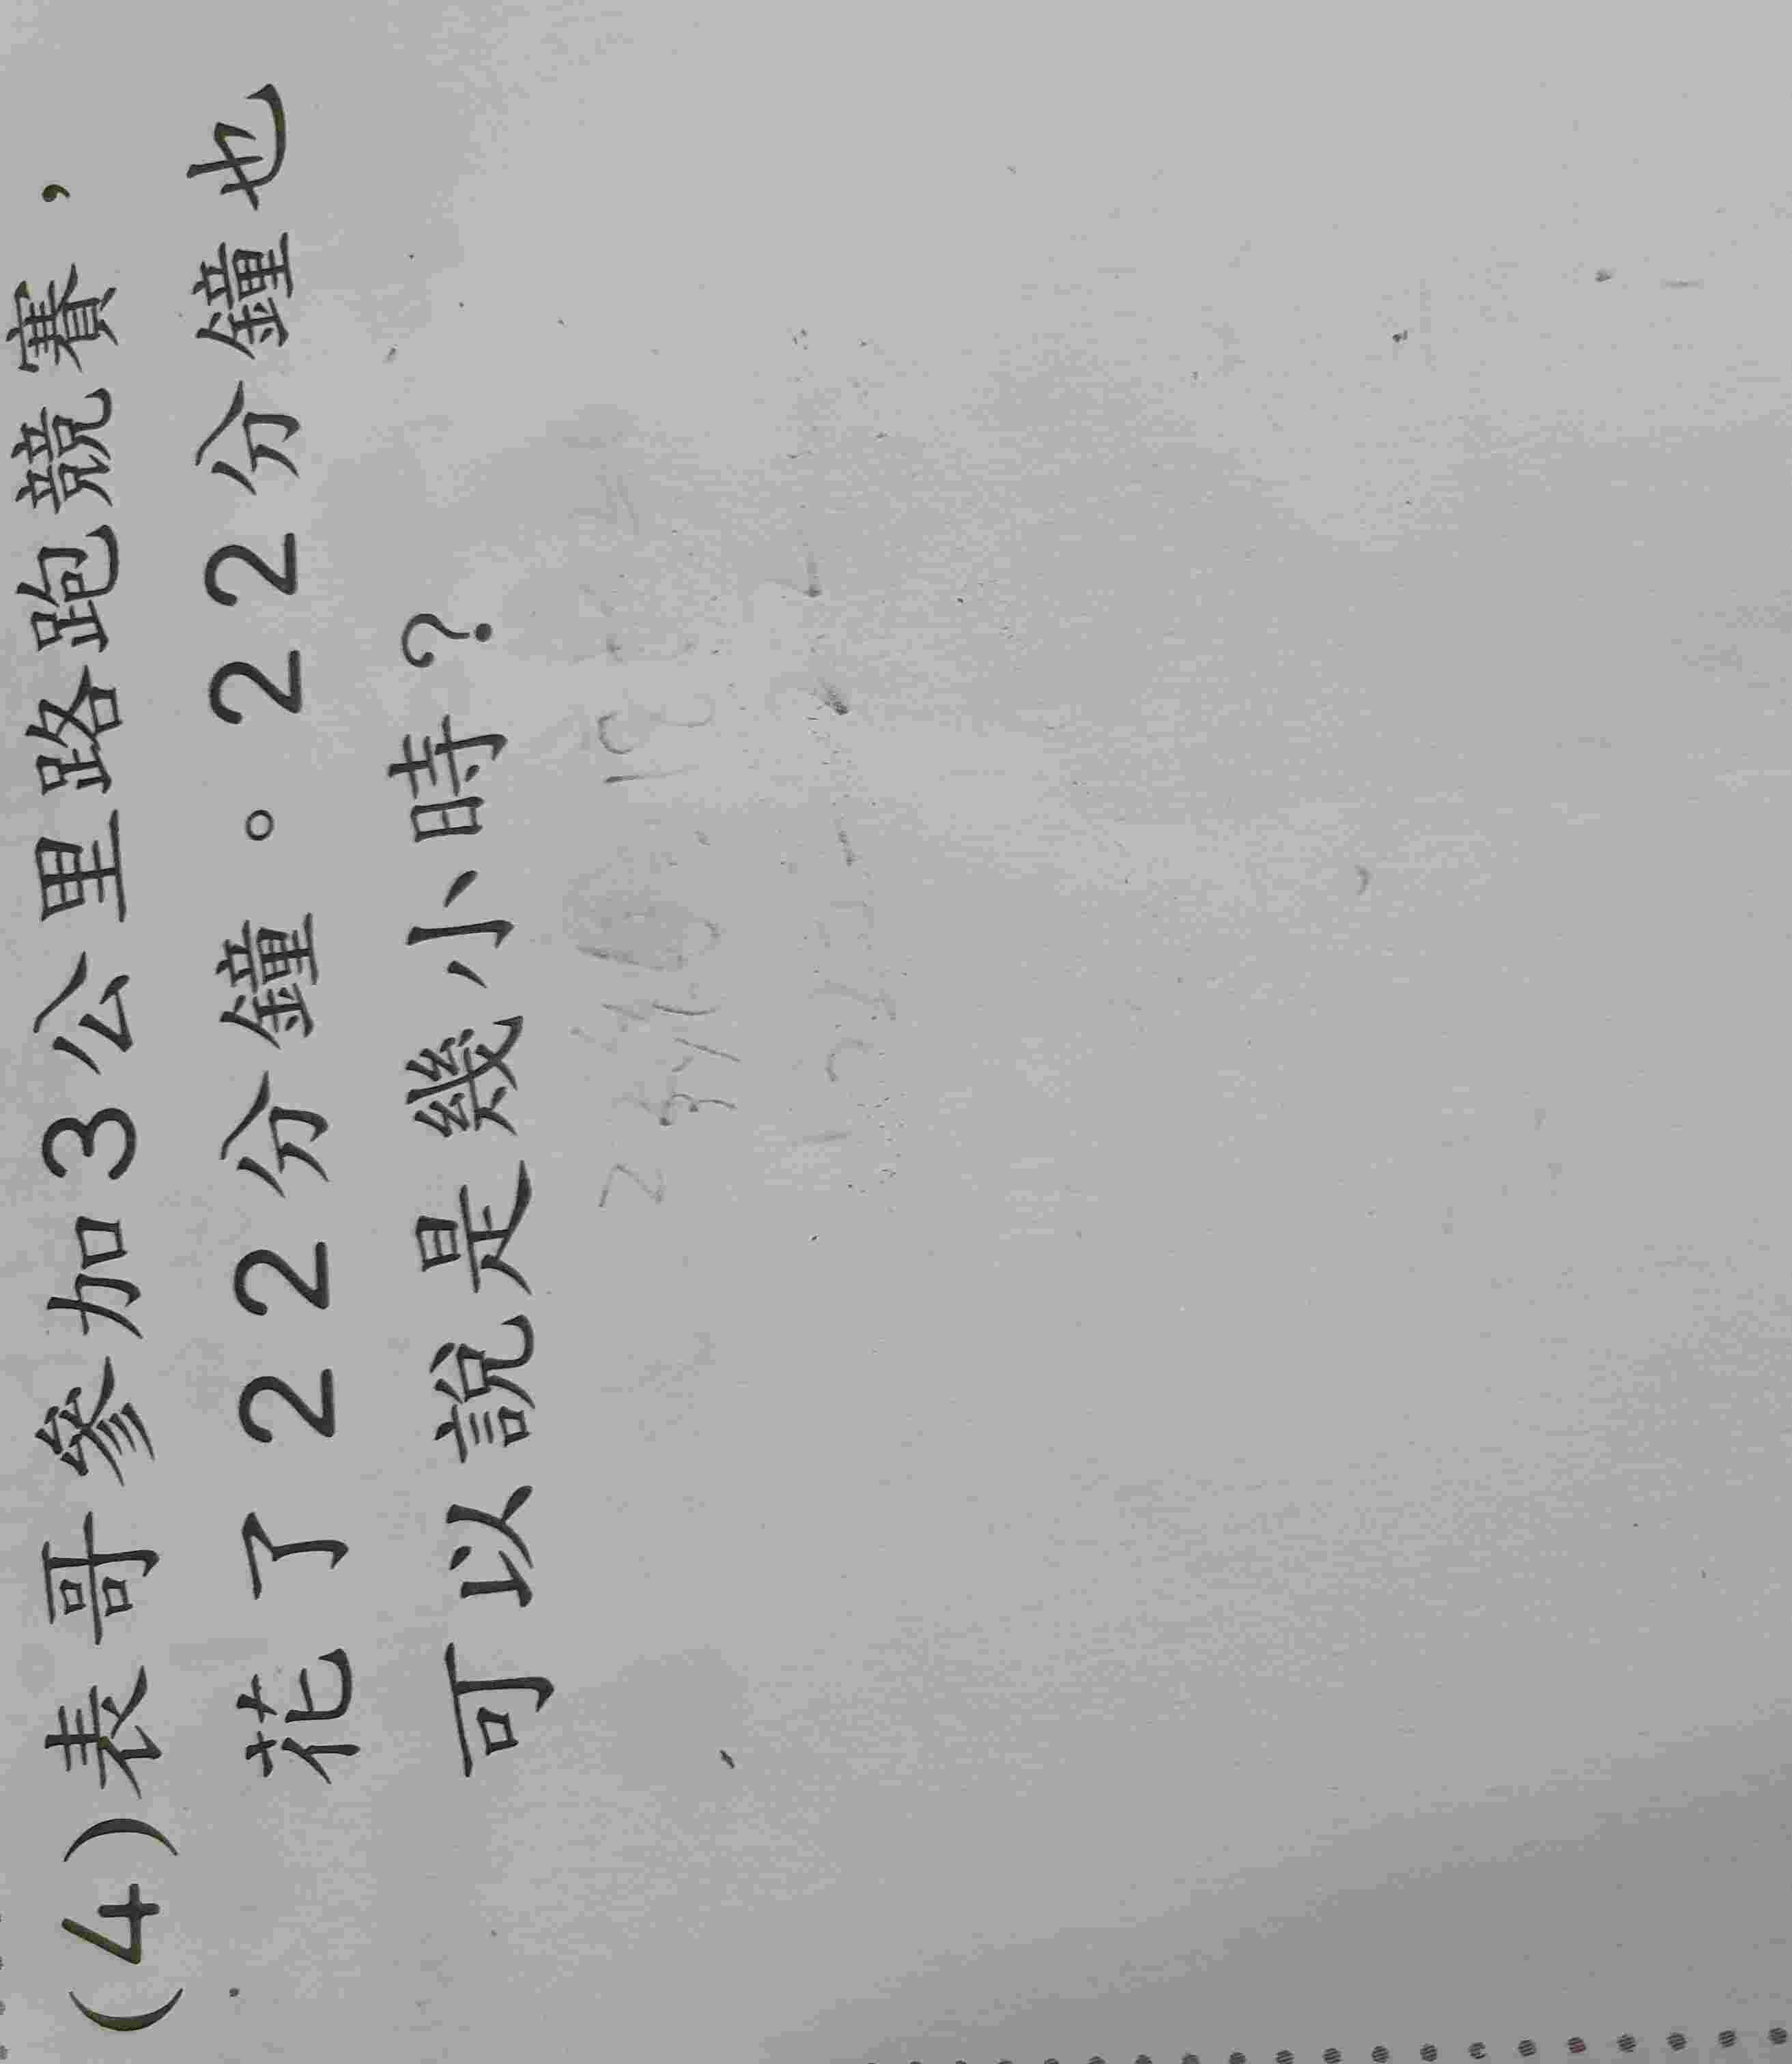 (4)表哥參加3公里路跑競賽，
花了22分鐘。22分鐘也
可以說是幾小時？